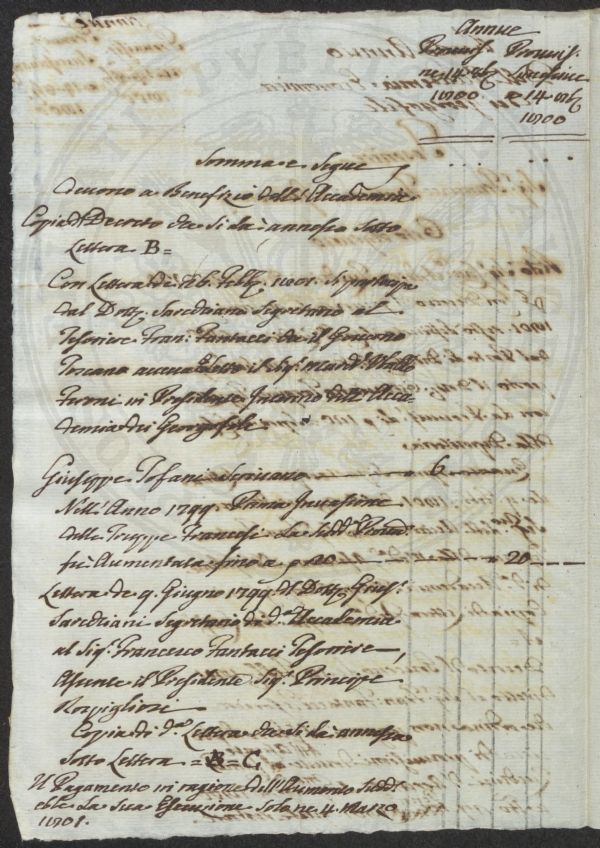 Annue Annue
Provvis. Provvis.
ne 14 a 14
1800 1800
Somma e Segue
devono a Benefizio dell'Accademia
Copia di Decreto che si dà annesso Sotto
Lettera B=
Con Lettera de 1801. si partecipa
dal Dott. Sarchiani Segretario al
Tesoriere Fran. Fantacci che il Governo
Toscano aveva Eletto il Sig.
Feroni in Presidente Interino dell'Acca-
demia dei Georgofili
Giuseppe Tofani Scrivano 6
Nell'Anno 1799. Prima Invasione
delle Truppe Francesi La
fù Aumentata fino a 20 20
Lettera de 9. Giugno 1799. il Dott. Gius.
Sarchiani Segretario di d.a Accademia
al Sig. Francesco Fantacci Tesoriere,
Assente il Presidente Sig. Principe
Rospigliosi
Copia di d.a Lettera che si dà annessa
Sotto Lettera = B = C.
Il Pagamento in ragione dell'Aumento Sudd.
ebbe La Sua Esecuzione Sola ne 4. Marzo
1801.